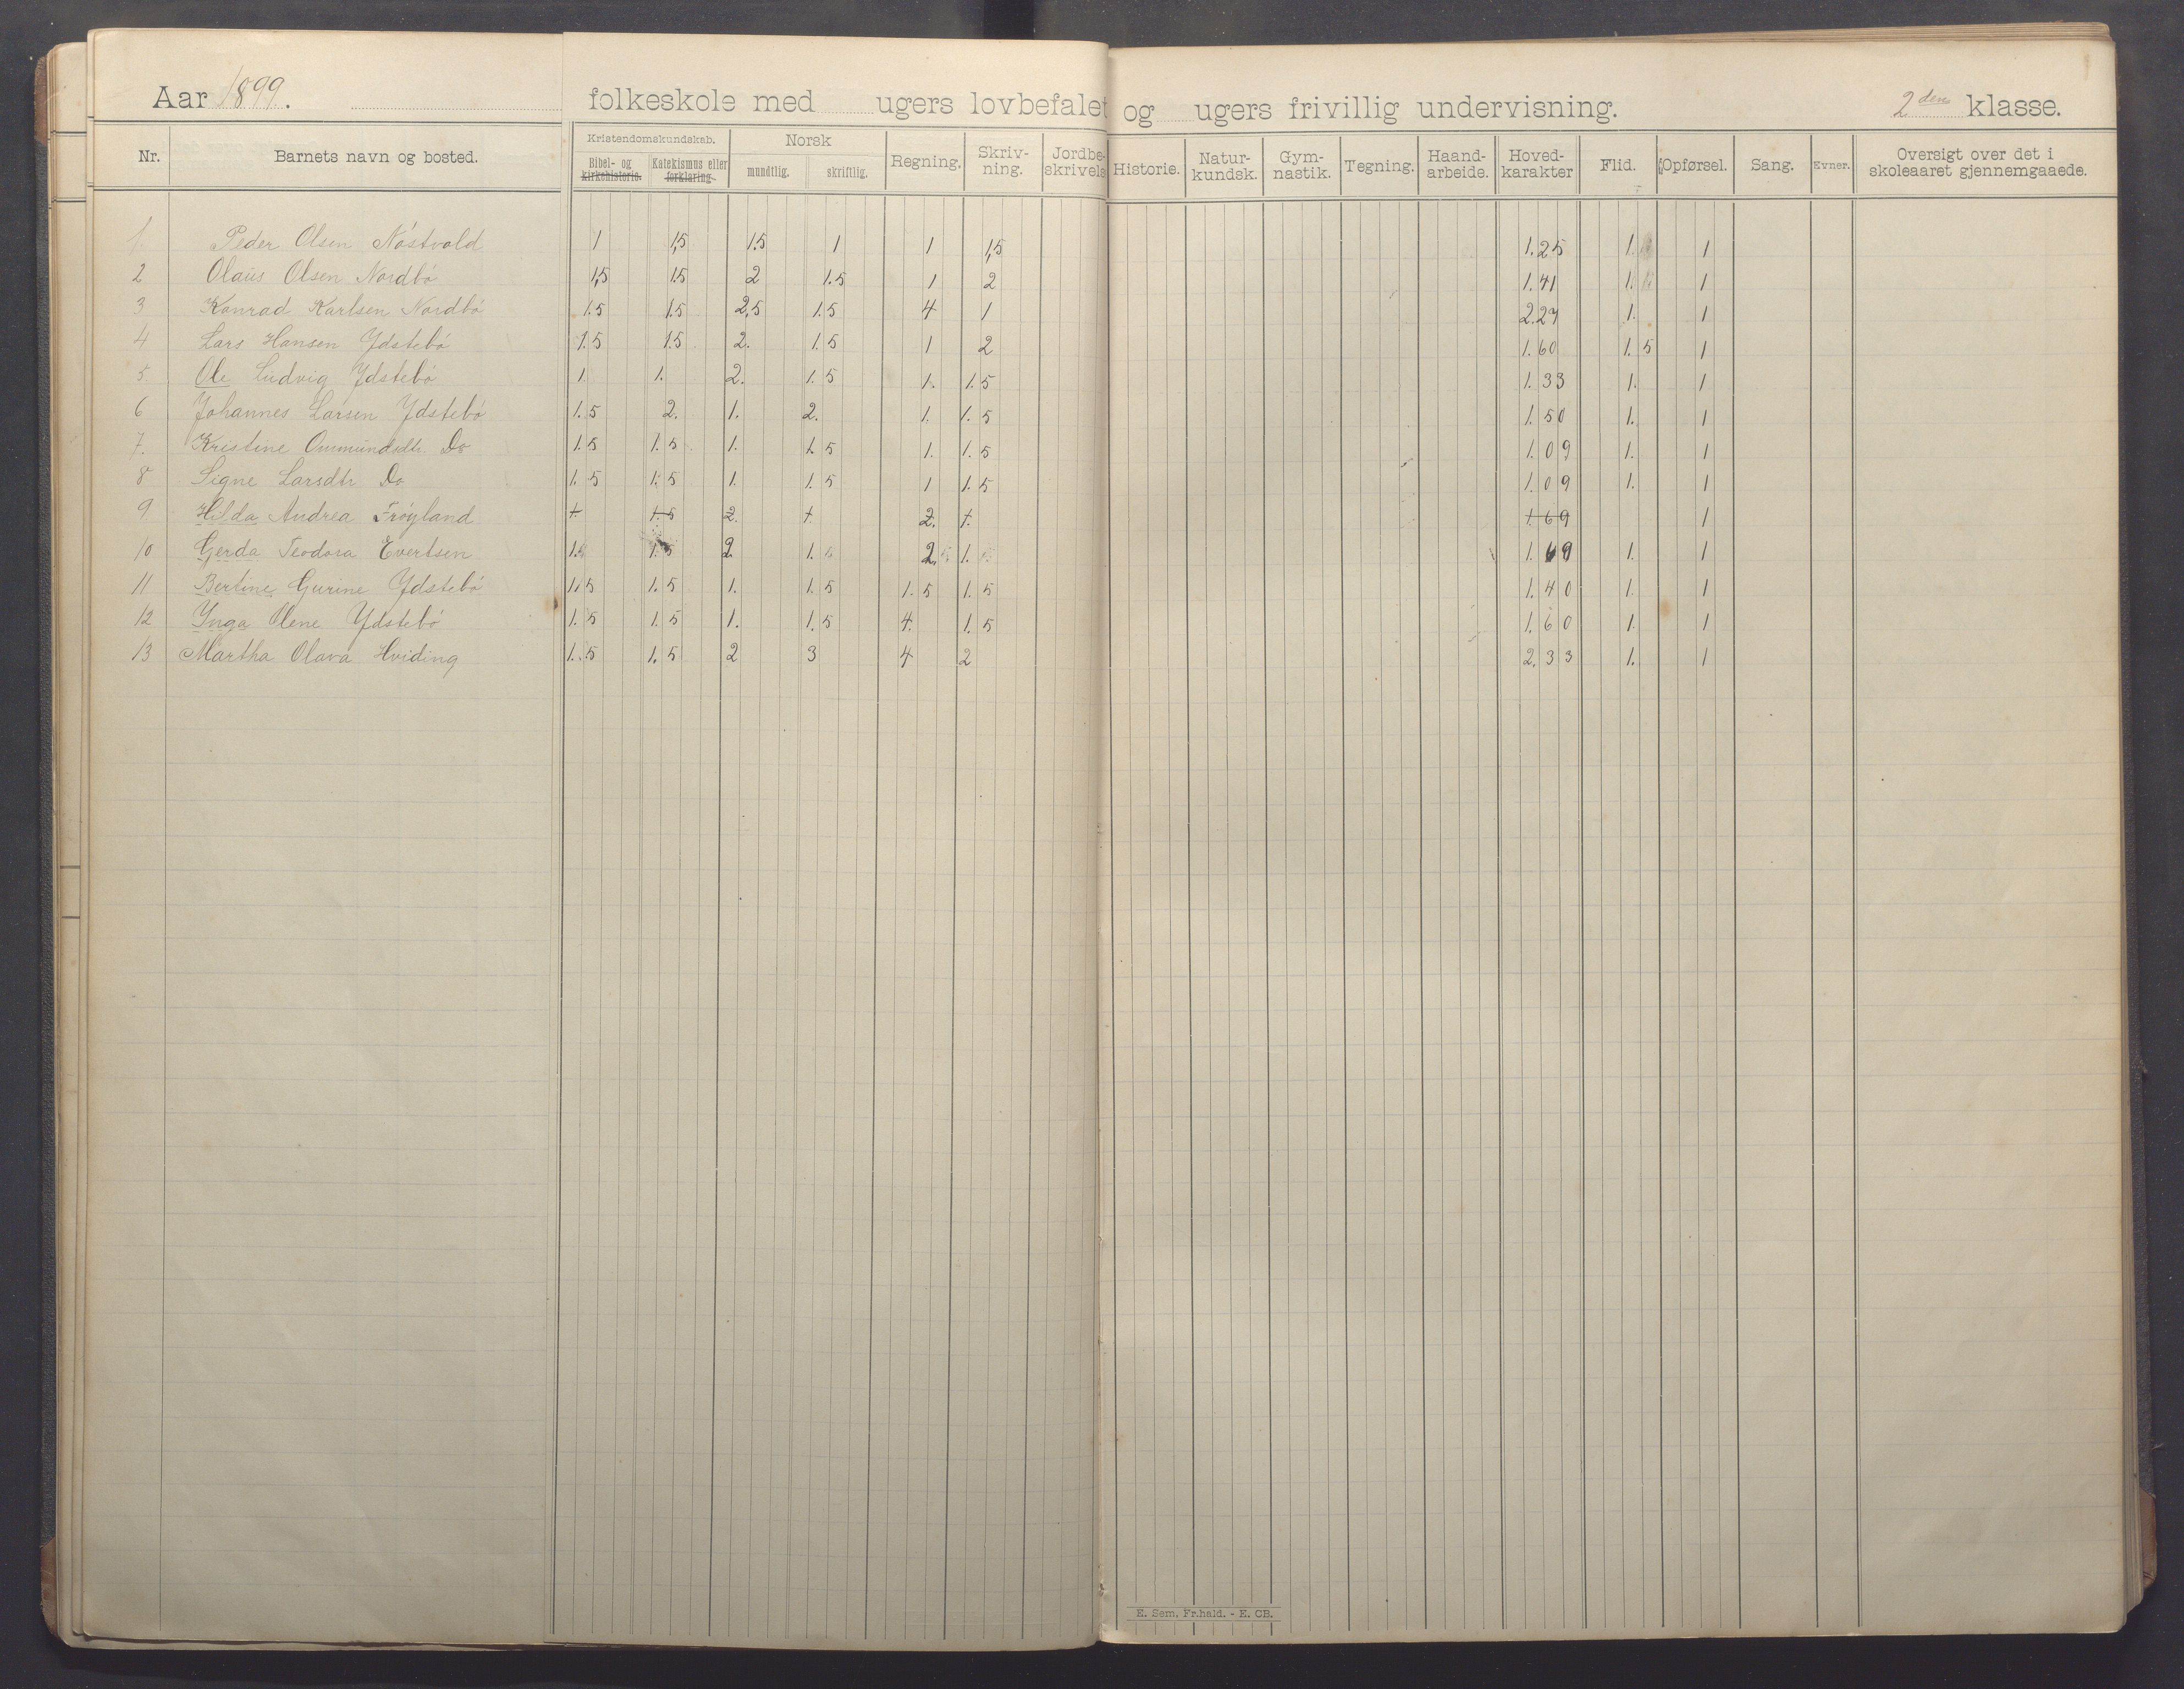 Aar 1899. folkeskole med ugers lovbefalet og ugers frivillig undervisning. 2den klasse.
Nr. Barnets navn og bosted. Kristendomskundskab. Bibel- og kirkehistorie. Katekismus eller forklaring. Norsk mundtlig. skriftlig. Regning. Skriv-ning. Jordbe-skrivels Historie. Natur-kundsk. Gym-nastik. Tegning. Haand-arbeide. Hoved-karakter Flid. Opførsel. Sang. Evner. Oversigt over det i skoleaaret gjennemgaaede.
1. Peder Olsen Nåstvold 1 1,5 1.5 1 1 1,5 1.25 1. 1
2 Olaus Olsen Nordbö 1,5 1.5 2 1.5 1 2 1.41 1. 1
3 Konrad Karlsen Nordbö 1.5 1.5 2,5 1.5 4 1 2.27 1. 1
4 Lars Hansen Ydstebö 1.5 1.5 2. 1.5 1 2 1.60 1.5 1
5. Ole Ludvig Ydstebö 1 1. 2. 1.5 1. 1.5 1.33 1. 1
6 Johannes Larsen Ydstebö 1.5 2. 1. 2. 1. 1.5 1.50 1. 1
7. Kristine Ommundsdtr. Do 1.5 1.5 1. 1.5 1. 1.5 1.09 1. 1
8 Signe Larsdtr Do 1.5 1.5 1. 1.5 1 1.5 1.09 1. 1
9 Hilda Andrea Fröyland 1. 1.5 2. 1. 2. 1. 1.69 1
10 Gerda Teodora Evertsen 1. 1.5 2 1. 2. 1. 1.69 1. 1
11 Bertine Gurine Ydstebö 1.5 1.5 1. 1.5 1.5 1.5 1.40 1. 1
12 Inga Olene Ydstebö 1.5 1.5 1. 1.5 4. 1.5 1.60 1. 1
13 Martha Olava Hviding 1.5 1.5 2 3 4 2 2.33 1. 1
E. Sem, Fr.hald. - E. CB.